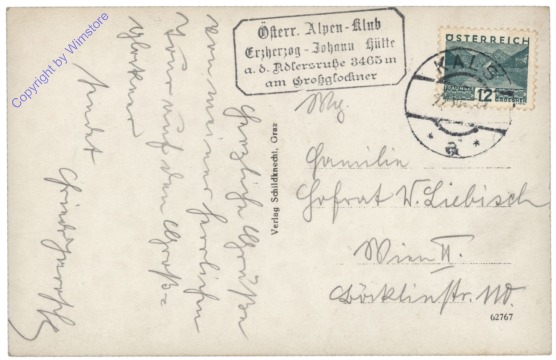 Copyright by Wimstore
Österr. Alpen-Klub
Erzherzog-Johann Hütte
a. d. Adlersruhe 3465 m
am Großglockner
ÖSTERREICH
12
KALS
a
Familie
Hofrat W. Liebisch
Wien II.
Böcklinstr. 110.
Verlag Schildknecht, Graz
62767
Herzliche Grüße
von meiner herrlichen
Tour auf den Groß-
glockner
sendet